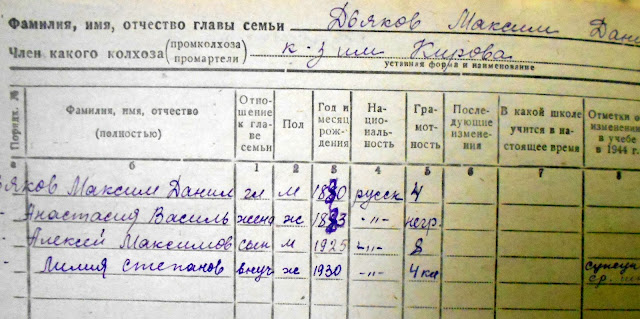 Фамилия, имя, отчество главы семьи Дьяков Максим Дани
Член какого колхоза (промколхоза промартели) к-з им Кирова
уставная форма и наименование
Порядк. № Фамилия, имя, отчество (полностью) Отношение к главе семьи Пол Год и месяц рождения Национальность Грамотность Последующие изменения В какой школе учится в настоящее время Отметки о изменени в учебе в 1944 г.
а б 1 2 3 4 5 6 7 8
ьяков Максим Данил гл м 1880 русск 4
- Анастасия Василь жена ж 1883 -„- негр.
- Алексей Максимов сын м 1925 -„- 8
- Лилия Степанов внуч ж 1930 -„- 4 кл